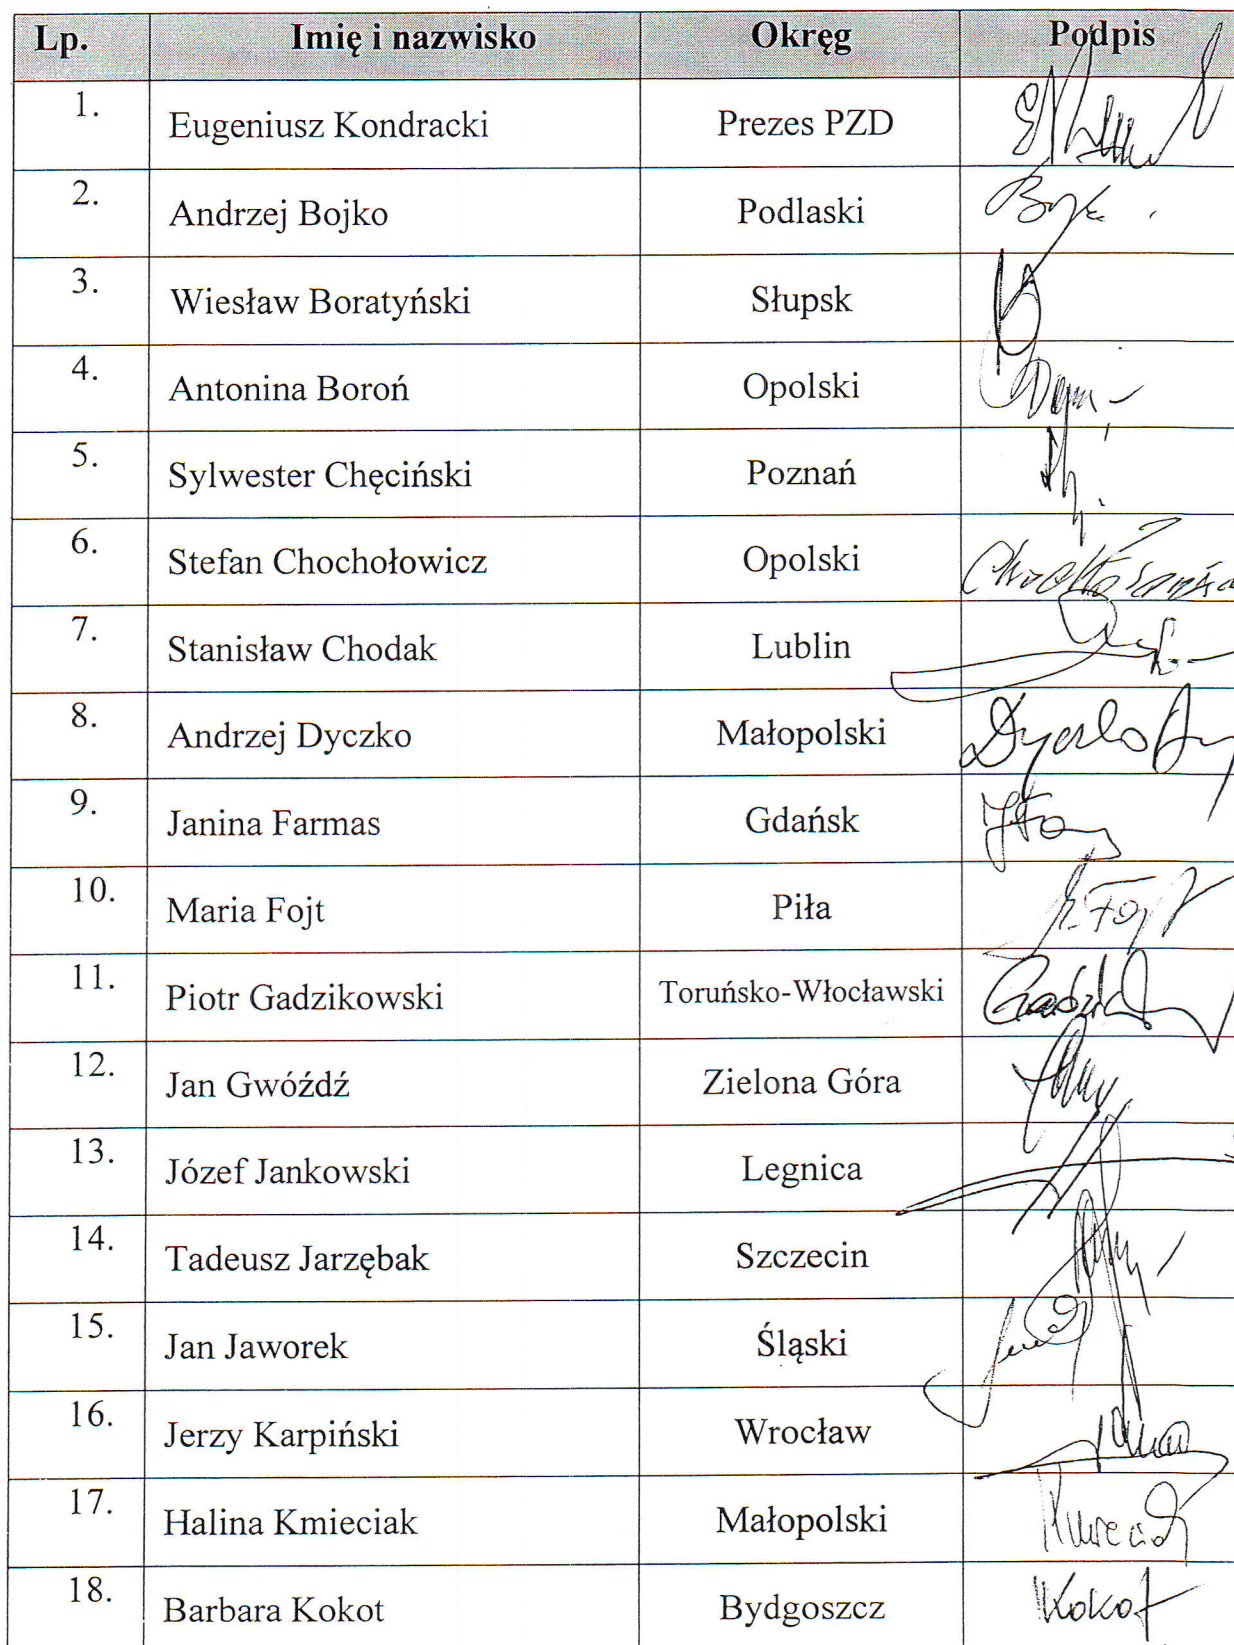 Lp. Imię i nazwisko Okręg Podpis
1. Eugeniusz Kondracki Prezes PZD
2. Andrzej Bojko Podlaski
3. Wiesław Boratyński Słupsk
4. Antonina Boroń Opolski
5. Sylwester Chęciński Poznań
6. Stefan Chochołowicz Opolski
7. Stanisław Chodak Lublin
8. Andrzej Dyczko Małopolski
9. Janina Farmas Gdańsk
10. Maria Fojt Piła
11. Piotr Gadzikowski Toruńsko-Włocławski
12. Jan Gwóźdź Zielona Góra
13. Józef Jankowski Legnica
14. Tadeusz Jarzębak Szczecin
15. Jan Jaworek Śląski
16. Jerzy Karpiński Wrocław
17. Halina Kmieciak Małopolski
18. Barbara Kokot Bydgoszcz Kokot